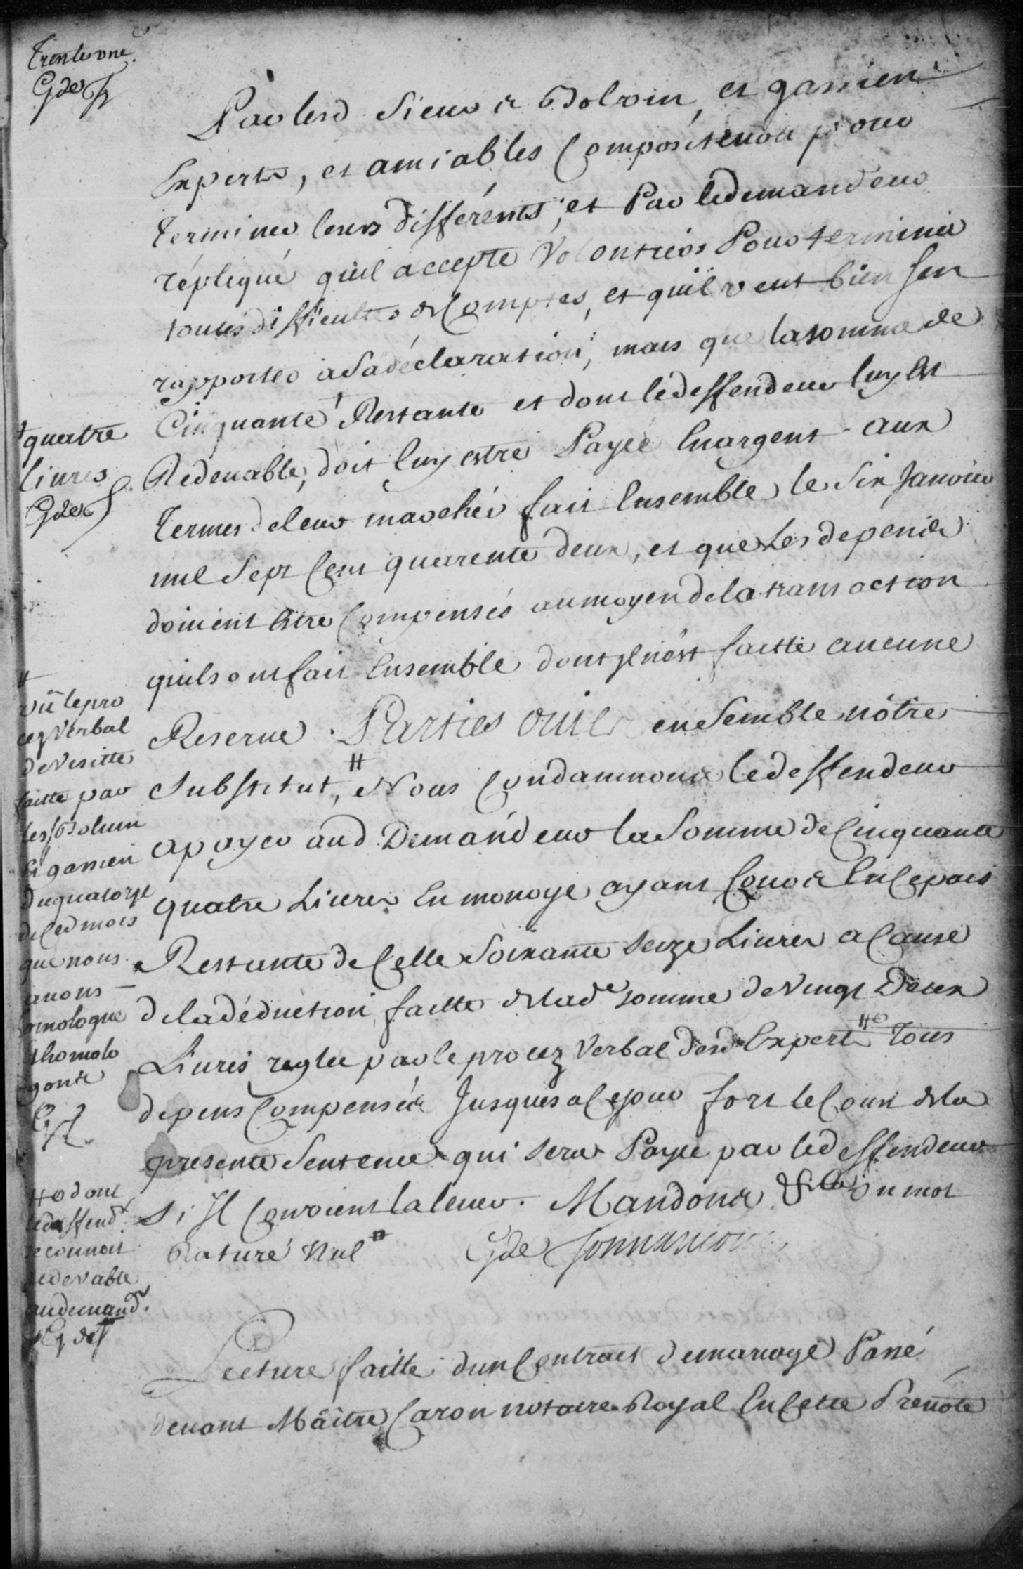 Trente une
Par lesd Sieurs Dolvin et gassien
Experts, et amiables Compositeurs pour
terminer leurs différents, et Par ledemandeur
répliqué quil accepte Volontiers Pour terminer
toutes difficultes de Comptes, et quil veut bien sen
rapporter à Sa déclaration, mais que la somme de
Cinquante Restante et dont le deffendeur luy Est
+ quatre
livres
Redevable, doit luy estre Payée En argent aux
Termes de leur marchéé fait Ensemble le Six Janvier
mil Sept Cent quarente deux, et que les depends
doivent Etre Compensés au moyen de la transaction
quils ont fait Ensemble dont Il nest faitte aucune
Reserve. Parties ouies ensemble nôtre
Substitut, # Nous Condamnons le deffendeur
a payer aud Demandeur la Somme de Cinquante
quatre Livres En monoye ayant Cours En Ce pais
Restante de Celle Soixante Seize Livres a Cause
de la déduction faitte de lade somme de Vingt Deux
Livres reglée par le procez Verbal desd Experts #o Tous
depens Compensés Jusques a Ce jour fors le Coust de la
presente Sentence qui sera Payée par le deffendeur
s'Il Convient la lever. Mandons &c un mot
Raturé Nul
#
vû le pro
cez Verbal
de Visitte
faitte par
les Dolvin
Et gassien
du quatorze
de Ced mois
que nous
avons
omologué
et homolo
gons
#o dont
le deffendr
se connoit
redevable
au demandr
Lecture faitte d'un Contract de mariage Passé
devant Maître Caron notaire Royal En Cette Prévôté